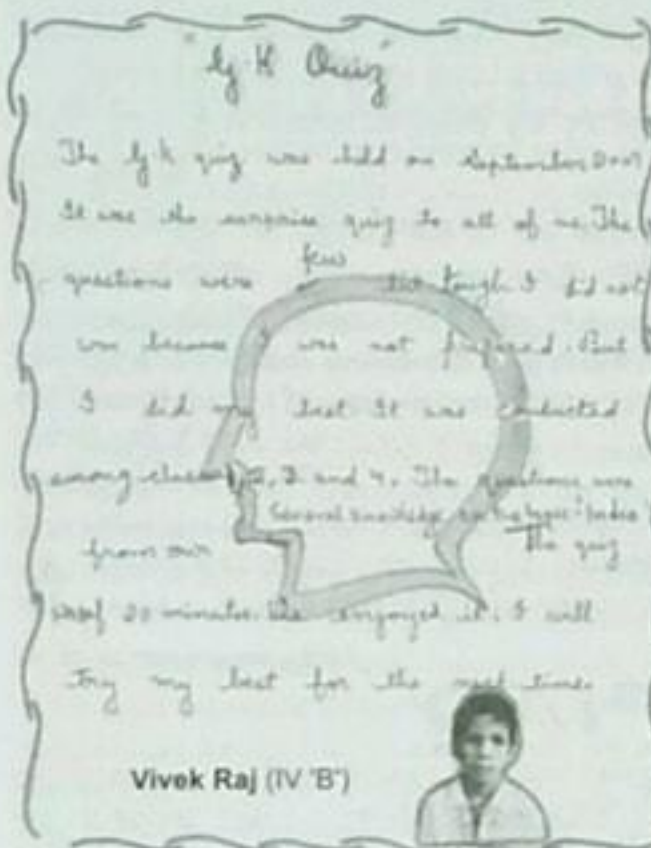 "G K Quiz"
The G K quiz was held on September
It was the surprise quiz to all of us. The
few
questions were but tough. I did not
win because I was not prepared. But
I did my best. It was conducted
among class 1, 2, 3 and 4. The questions were
General knowledge on the topic 'India'
from our The quiz
was of 20 minutes. We enjoyed it. I will
try my best for the next time.
Vivek Raj (IV 'B')